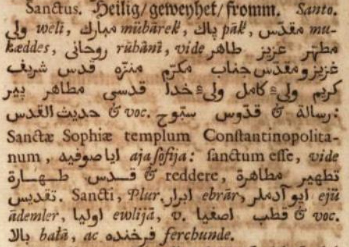 Sanctus. Heilig/geweyhet/fromm. Santo.
ولى weli, مبارك mübärek, پاك päk, مقدّس mu-
kæddes, روحانى rühäni, vide طاهر عزيز مطهّر
عزيز و مقدّس جناب مكرّم منزّه قدس شريف
كريم ولىء كامل ولىء خدا قدسى مطاهر پير
رسالة & قدّوس سبّوح & voc. حديث القدس:
Sanctæ Sophiæ templum Constantinopolita-
num, ايا صوفيه aja sofija: sanctum esse, vide
تطهير مطاهرة & reddere, قدس طهارة
تقديس. Sancti, Plur. ابرار ebrär, ايو آدملر ejü
ädemler, اوليا ewlijä, v. اصفيا & قطب & voc.
بالا balä, ac فرخنده ferchunde.